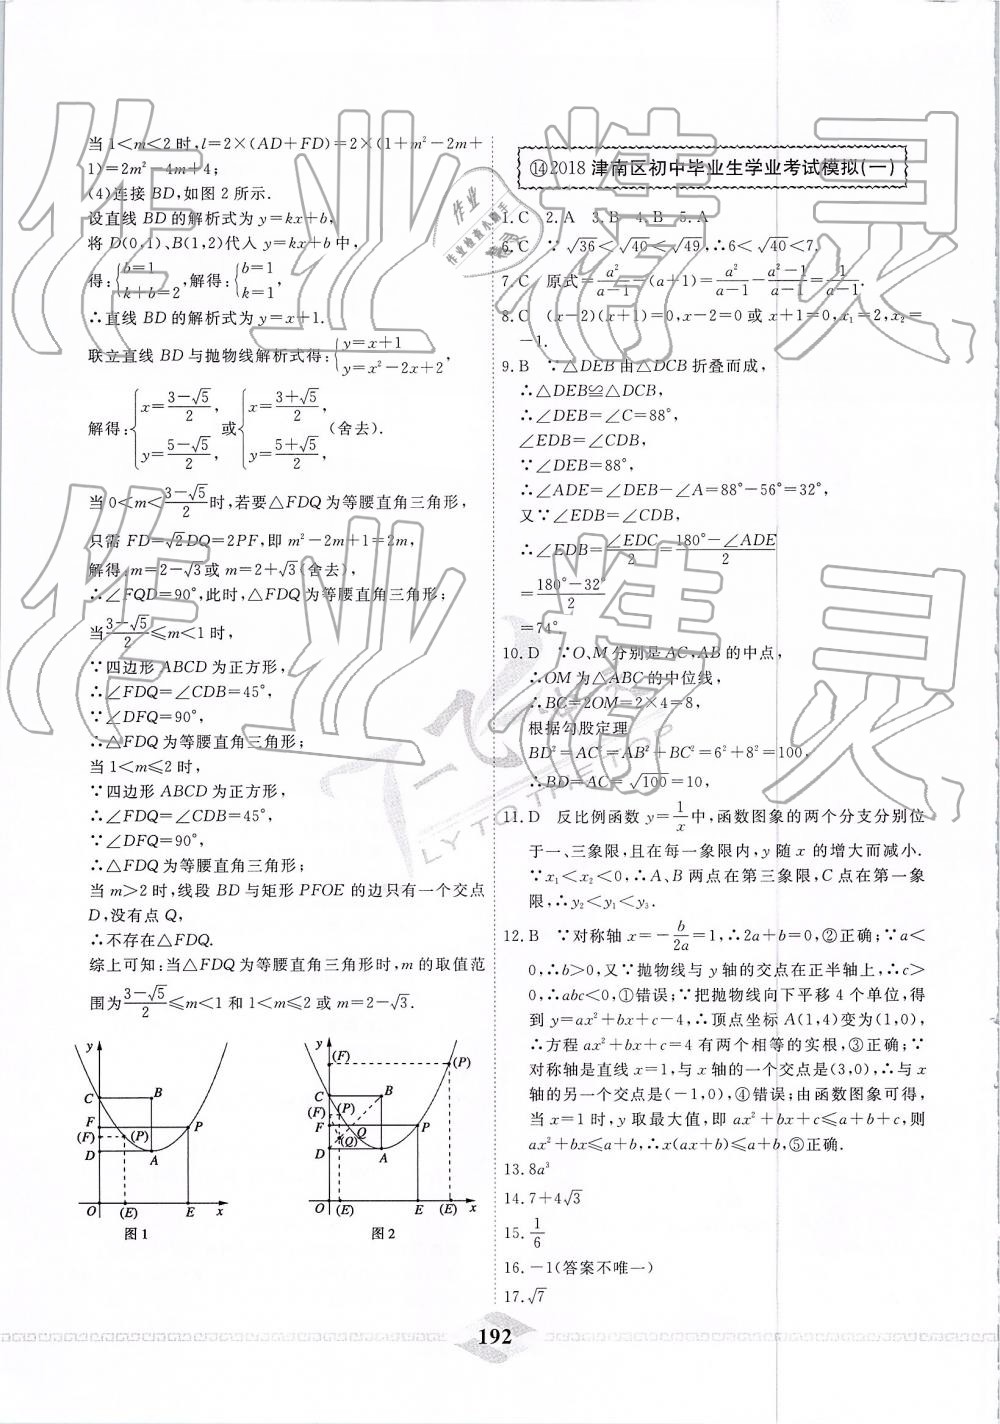 当1<m<2时,l=2×(AD+FD)=2×(1+m²-2m+
1)=2m²-4m+4;
(4)连接BD,如图2所示.
设直线BD的解析式为y=kx+b,
将D(0,1)、B(1,2)代入y=kx+b中,
得:{b=1 k+b=2,解得:{b=1 k=1,
∴直线BD的解析式为y=x+1.
联立直线BD与抛物线解析式得:{y=x+1 y=x²-2x+2,
解得:{x=(3-√5)/2, y=(5-√5)/2, 或{x=(3+√5)/2, y=(5+√5)/2,(舍去).
当0<m<(3-√5)/2时,若要△FDQ为等腰直角三角形,
只需FD=√2DQ=2PF,即m²-2m+1=2m,
解得m=2-√3或m=2+√3(舍去),
∴∠FQD=90°,此时,△FDQ为等腰直角三角形;
当(3-√5)/2≤m<1时,
∵四边形ABCD为正方形,
∴∠FDQ=∠CDB=45°,
∵∠DFQ=90°,
∴△FDQ为等腰直角三角形;
当1<m≤2时,
∵四边形ABCD为正方形,
∴∠FDQ=∠CDB=45°,
∵∠DFQ=90°,
∴△FDQ为等腰直角三角形;
当m>2时,线段BD与矩形PFOE的边只有一个交点
D,没有点Q,
∴不存在△FDQ.
综上可知:当△FDQ为等腰直角三角形时,m的取值范
围为(3-√5)/2≤m<1和1<m≤2或m=2-√3.
y
C B
F P
(F) (P)
D A
O (E) E x
图1
y
(F) (P)
C B
(F) (P)
F Q P
(Q)
D A
O (E) E (E) x
图2
⑭2018津南区初中毕业生学业考试模拟(一)
1.C 2.A 3.B 4.B 5.A
6.C ∵√36<√40<√49,∴6<√40<7.
7.C 原式=a²/(a-1)-(a+1)=a²/(a-1)-(a²-1)/(a-1)=1/(a-1).
8.C (x-2)(x+1)=0,x-2=0或x+1=0,x₁=2,x₂=
-1.
9.B ∵△DEB由△DCB折叠而成,
∴△DEB≌△DCB,
∴∠DEB=∠C=88°,
∠EDB=∠CDB,
∵∠DEB=88°,
∴∠ADE=∠DEB-∠A=88°-56°=32°,
又∵∠EDB=∠CDB,
∴∠EDB=∠EDC/2=(180°-∠ADE)/2
=(180°-32°)/2
=74°
10.D ∵O、M分别是AC、AB的中点,
∴OM为△ABC的中位线,
∴BC=2OM=2×4=8,
根据勾股定理
BD²=AC²=AB²+BC²=6²+8²=100,
∴BD=AC=√100=10,
11.D 反比例函数y=1/x中,函数图象的两个分支分别位
于一、三象限,且在每一象限内,y随x的增大而减小.
∵x₁<x₂<0,∴A、B两点在第三象限,C点在第一象
限,∴y₂<y₁<y₃.
12.B ∵对称轴x=-b/2a=1,∴2a+b=0,②正确;∵a<
0,∴b>0,又∵抛物线与y轴的交点在正半轴上,∴c>
0,∴abc<0,①错误;∵把抛物线向下平移4个单位,得
到y=ax²+bx+c-4,∴顶点坐标A(1,4)变为(1,0),
∴方程ax²+bx+c=4有两个相等的实根,③正确;∵
对称轴是直线x=1,与x轴的一个交点是(3,0),∴与x
轴的另一个交点是(-1,0),④错误;由函数图象可得,
当x=1时,y取最大值,即ax²+bx+c≤a+b+c,则
ax²+bx≤a+b,∴x(ax+b)≤a+b,⑤正确.
13.8a³
14.7+4√3
15.1/6
16.-1(答案不唯一)
17.√7
192
作业精灵
作业精灵